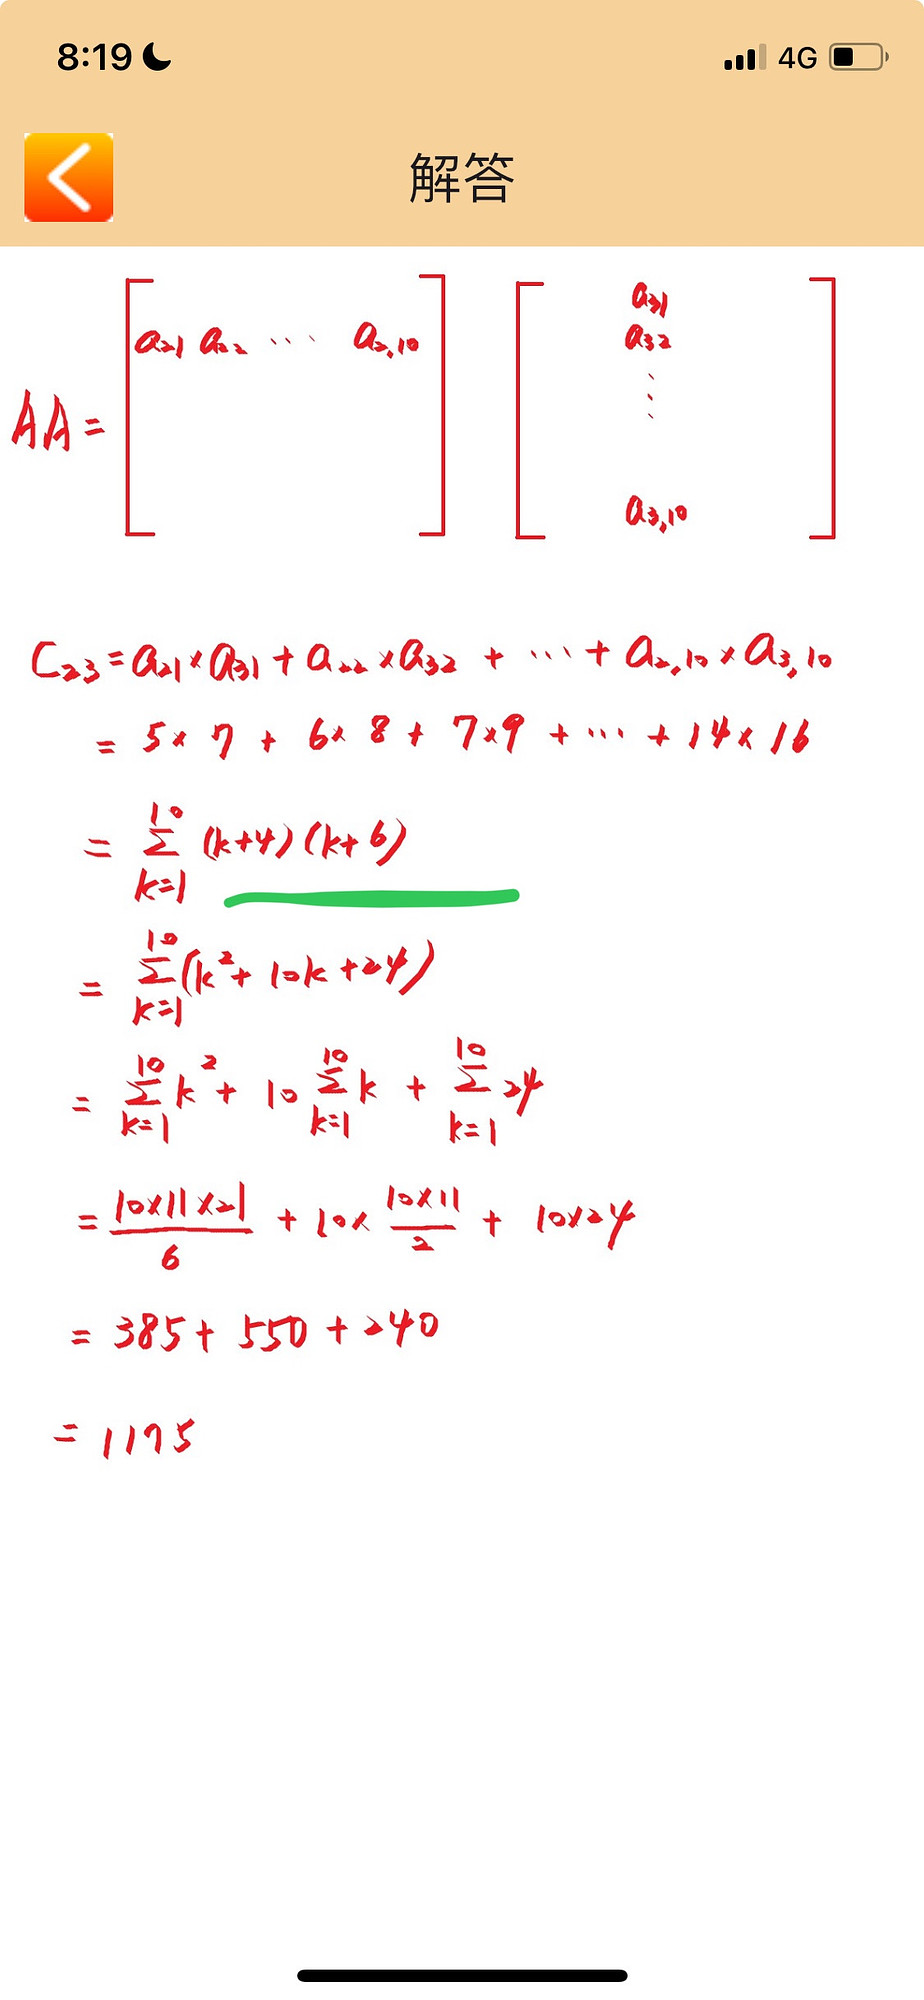 8:19 4G
解答
AA = [ a21 a22 ... a2,10 ] [ a31
a32
⋮
a3,10 ]
C23 = a21 × a31 + a22 × a32 + ... + a2,10 × a3,10
= 5 × 7 + 6 × 8 + 7 × 9 + ... + 14 × 16
= 10 Σ k=1 (k+4)(k+6)
= 10 Σ k=1 (k² + 10k + 24)
= 10 Σ k=1 k² + 10 10 Σ k=1 k + 10 Σ k=1 24
= 10×11×21/6 + 10× 10×11/2 + 10×24
= 385 + 550 + 240
= 1175